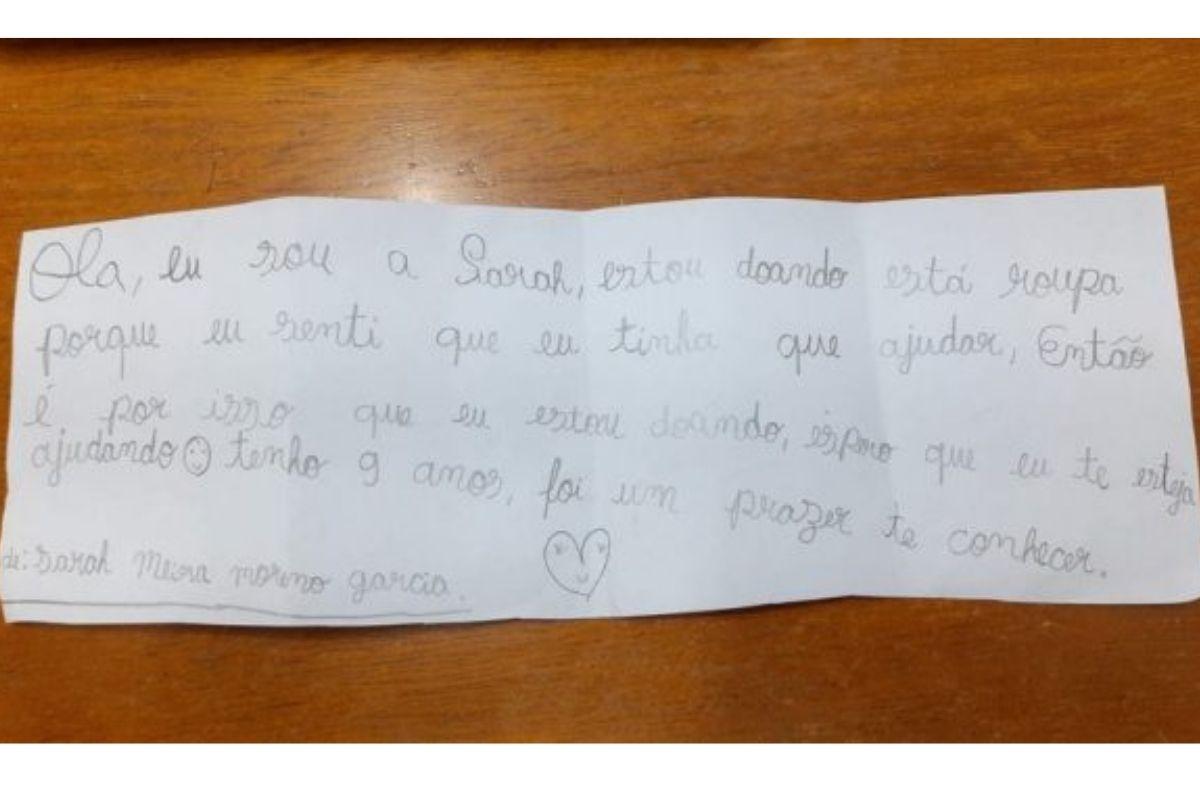 Ola, eu sou a Sarah, estou doando está roupa
porque eu senti que eu tinha que ajudar, Então
é por isso que eu estou doando, espero que eu te esteja
ajudando☺ tenho 9 anos, foi um prazer te conhecer.
de: Sarah Meira moreno garcia.